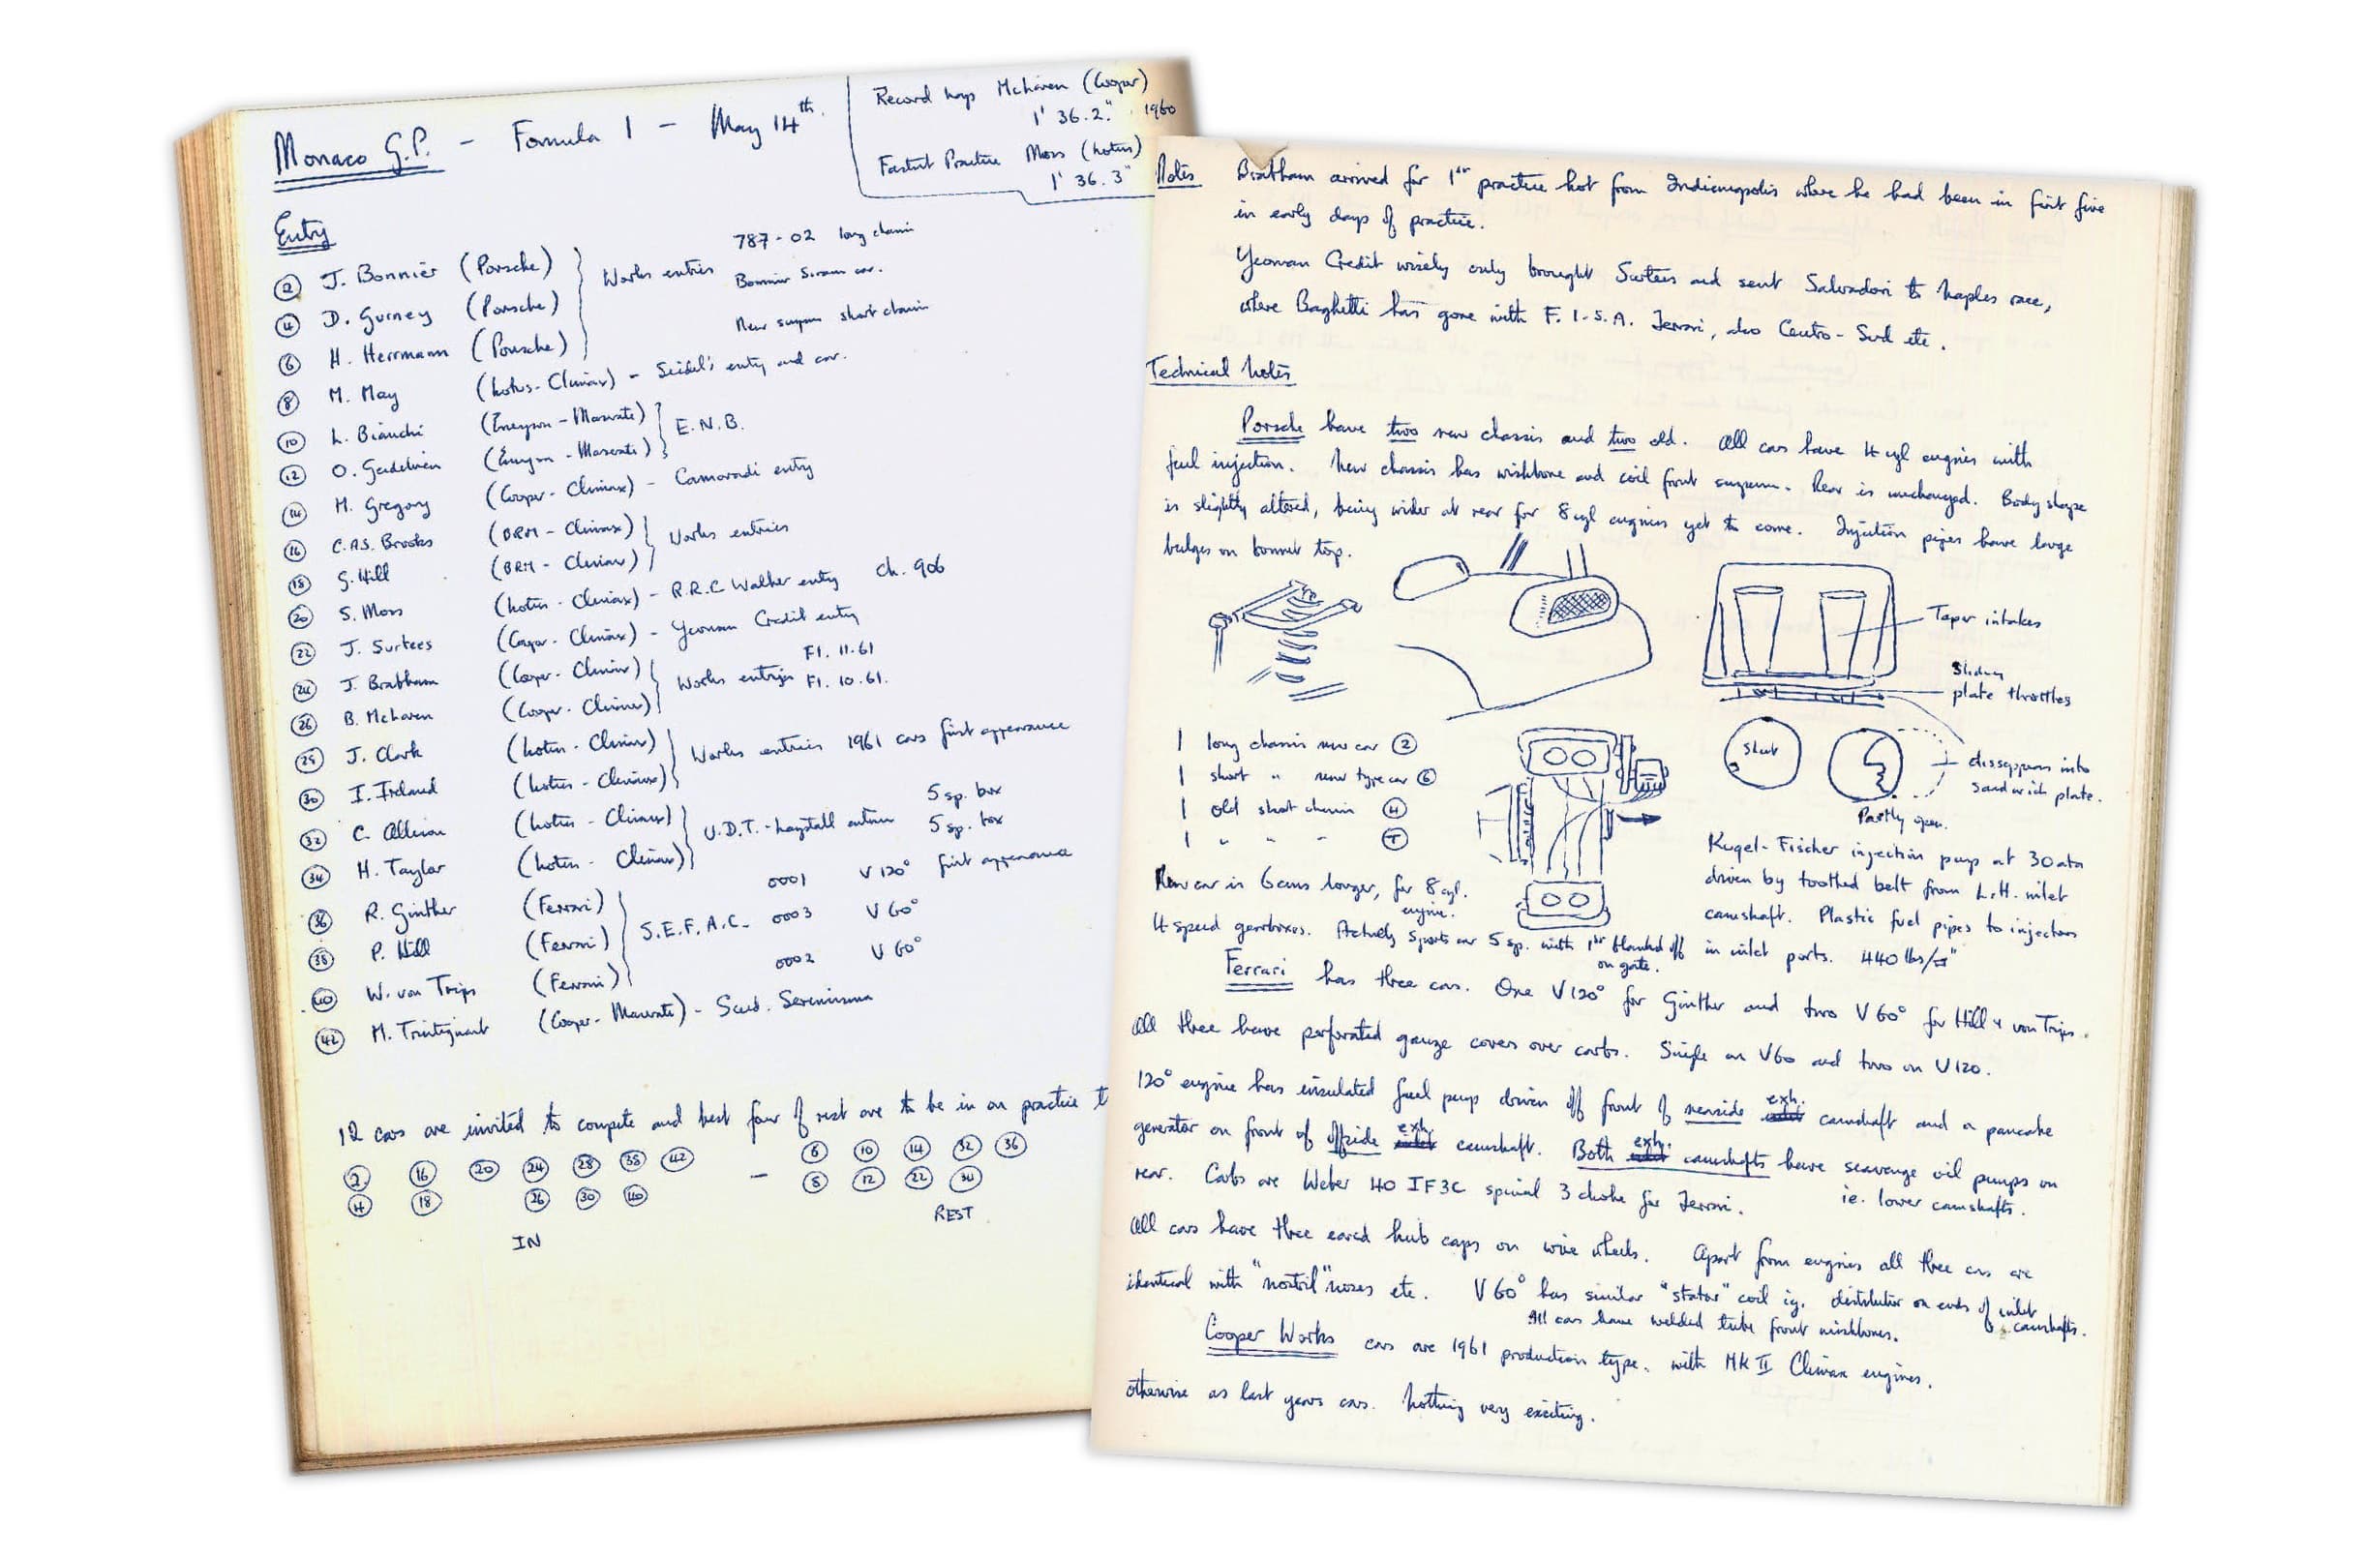 Monaco G.P. - Formula 1 - May 14th.
Record Lap McLaren (Cooper)
1' 36.2". 1960
Fastest Practice Moss (Lotus)
1' 36.3"
Entry
2 J. Bonnier (Porsche) Works entries 787-02 long chassis
4 D. Gurney (Porsche) Bonnier car.
6 H. Herrmann (Porsche) New short chassis
8 M. May (Lotus-Climax) - Seidel's entry and car.
10 L. Bianchi (Emeryson-Maserati) E.N.B.
12 O. Gendebien (Emeryson-Maserati)
14 M. Gregory (Cooper-Climax) - Camoradi entry
16 C.A.S. Brooks (BRM-Climax) Works entries
18 G. Hill (BRM-Climax)
20 S. Moss (Lotus-Climax) - R.R.C Walker entry ch. 906
22 J. Surtees (Cooper-Climax) - Yeoman Credit entry
24 J. Brabham (Cooper-Climax) Works entries F1. 11.61
26 B. McLaren (Cooper-Climax) F1. 10.61.
28 J. Clark (Lotus-Climax) Works entries 1961 cars first appearance
30 I. Ireland (Lotus-Climax)
32 C. Allison (Lotus-Climax) U.D.T.-Laystall entries 5 sp. box
34 H. Taylor (Lotus-Climax) 5 sp. box
36 R. Ginther (Ferrari) S.E.F.A.C. 0001 V 120° first appearance
38 P. Hill (Ferrari) 0003 V 60°
40 W. von Trips (Ferrari) 0002 V 60°
42 M. Trintignant (Cooper-Maserati) - Scud. Serenissima
12 cars are invited to compete and best four of rest are to be in on practice t
2 16 20 24 28 38 42 - 6 10 14 32 36
4 18 26 30 40 8 12 22 34
IN REST
Notes Brabham arrived for 1st practice hot from Indianapolis where he had been in first five
in early days of practice.
Yeoman Credit wisely only brought Surtees and sent Salvadori to Naples race,
where Baghetti has gone with F.I.S.A. Ferrari, also Centro-Sud etc.
Technical Notes
Porsche have two new chassis and two old. All cars have 4 cyl engines with
fuel injection. New chassis has wishbone and coil front suspn. Rear is unchanged. Body shape
is slightly altered, being wider at rear for 8 cyl engines yet to come. Injection pipes have large
bulges on bonnet top.
Taper intakes
Sliding
plate throttles
Shut
disappears into
sandwich plate.
Partly open.
1 long chassis new car 2
1 short " new type car 6
1 old short chassis 4
1 " " " T
New car is 6 cms longer, for 8 cyl.
engine.
4 speed gearboxes. Actually sports car 5 sp. with 1st blanked off
on gate.
Kugel-Fischer injection pump at 30 ata
driven by toothed belt from L.H. inlet
camshaft. Plastic fuel pipes to injectors
in inlet ports. 440 lbs/□"
Ferrari has three cars. One V120° for Ginther and two V60° for Hill & von Trips.
All three have perforated gauze covers over carbs. Single on V60 and two on V120.
120° engine has insulated fuel pump driven off front of nearside exh. camshaft and a pancake
generator on front of offside exh. camshaft. Both exh. camshafts have scavenge oil pumps on
rear. Carbs are Weber 40 IF3C special 3 choke for Ferrari. ie. lower camshafts.
All cars have three eared hub caps on wire wheels. Apart from engines all three cars are
identical with "nostril" noses etc. V60° has similar "stator" coil ig. distributor on ends of inlet camshafts.
All cars have welded tube front wishbones.
Cooper Works cars are 1961 production type. with MK II Climax engines.
otherwise as last years cars. Nothing very exciting.